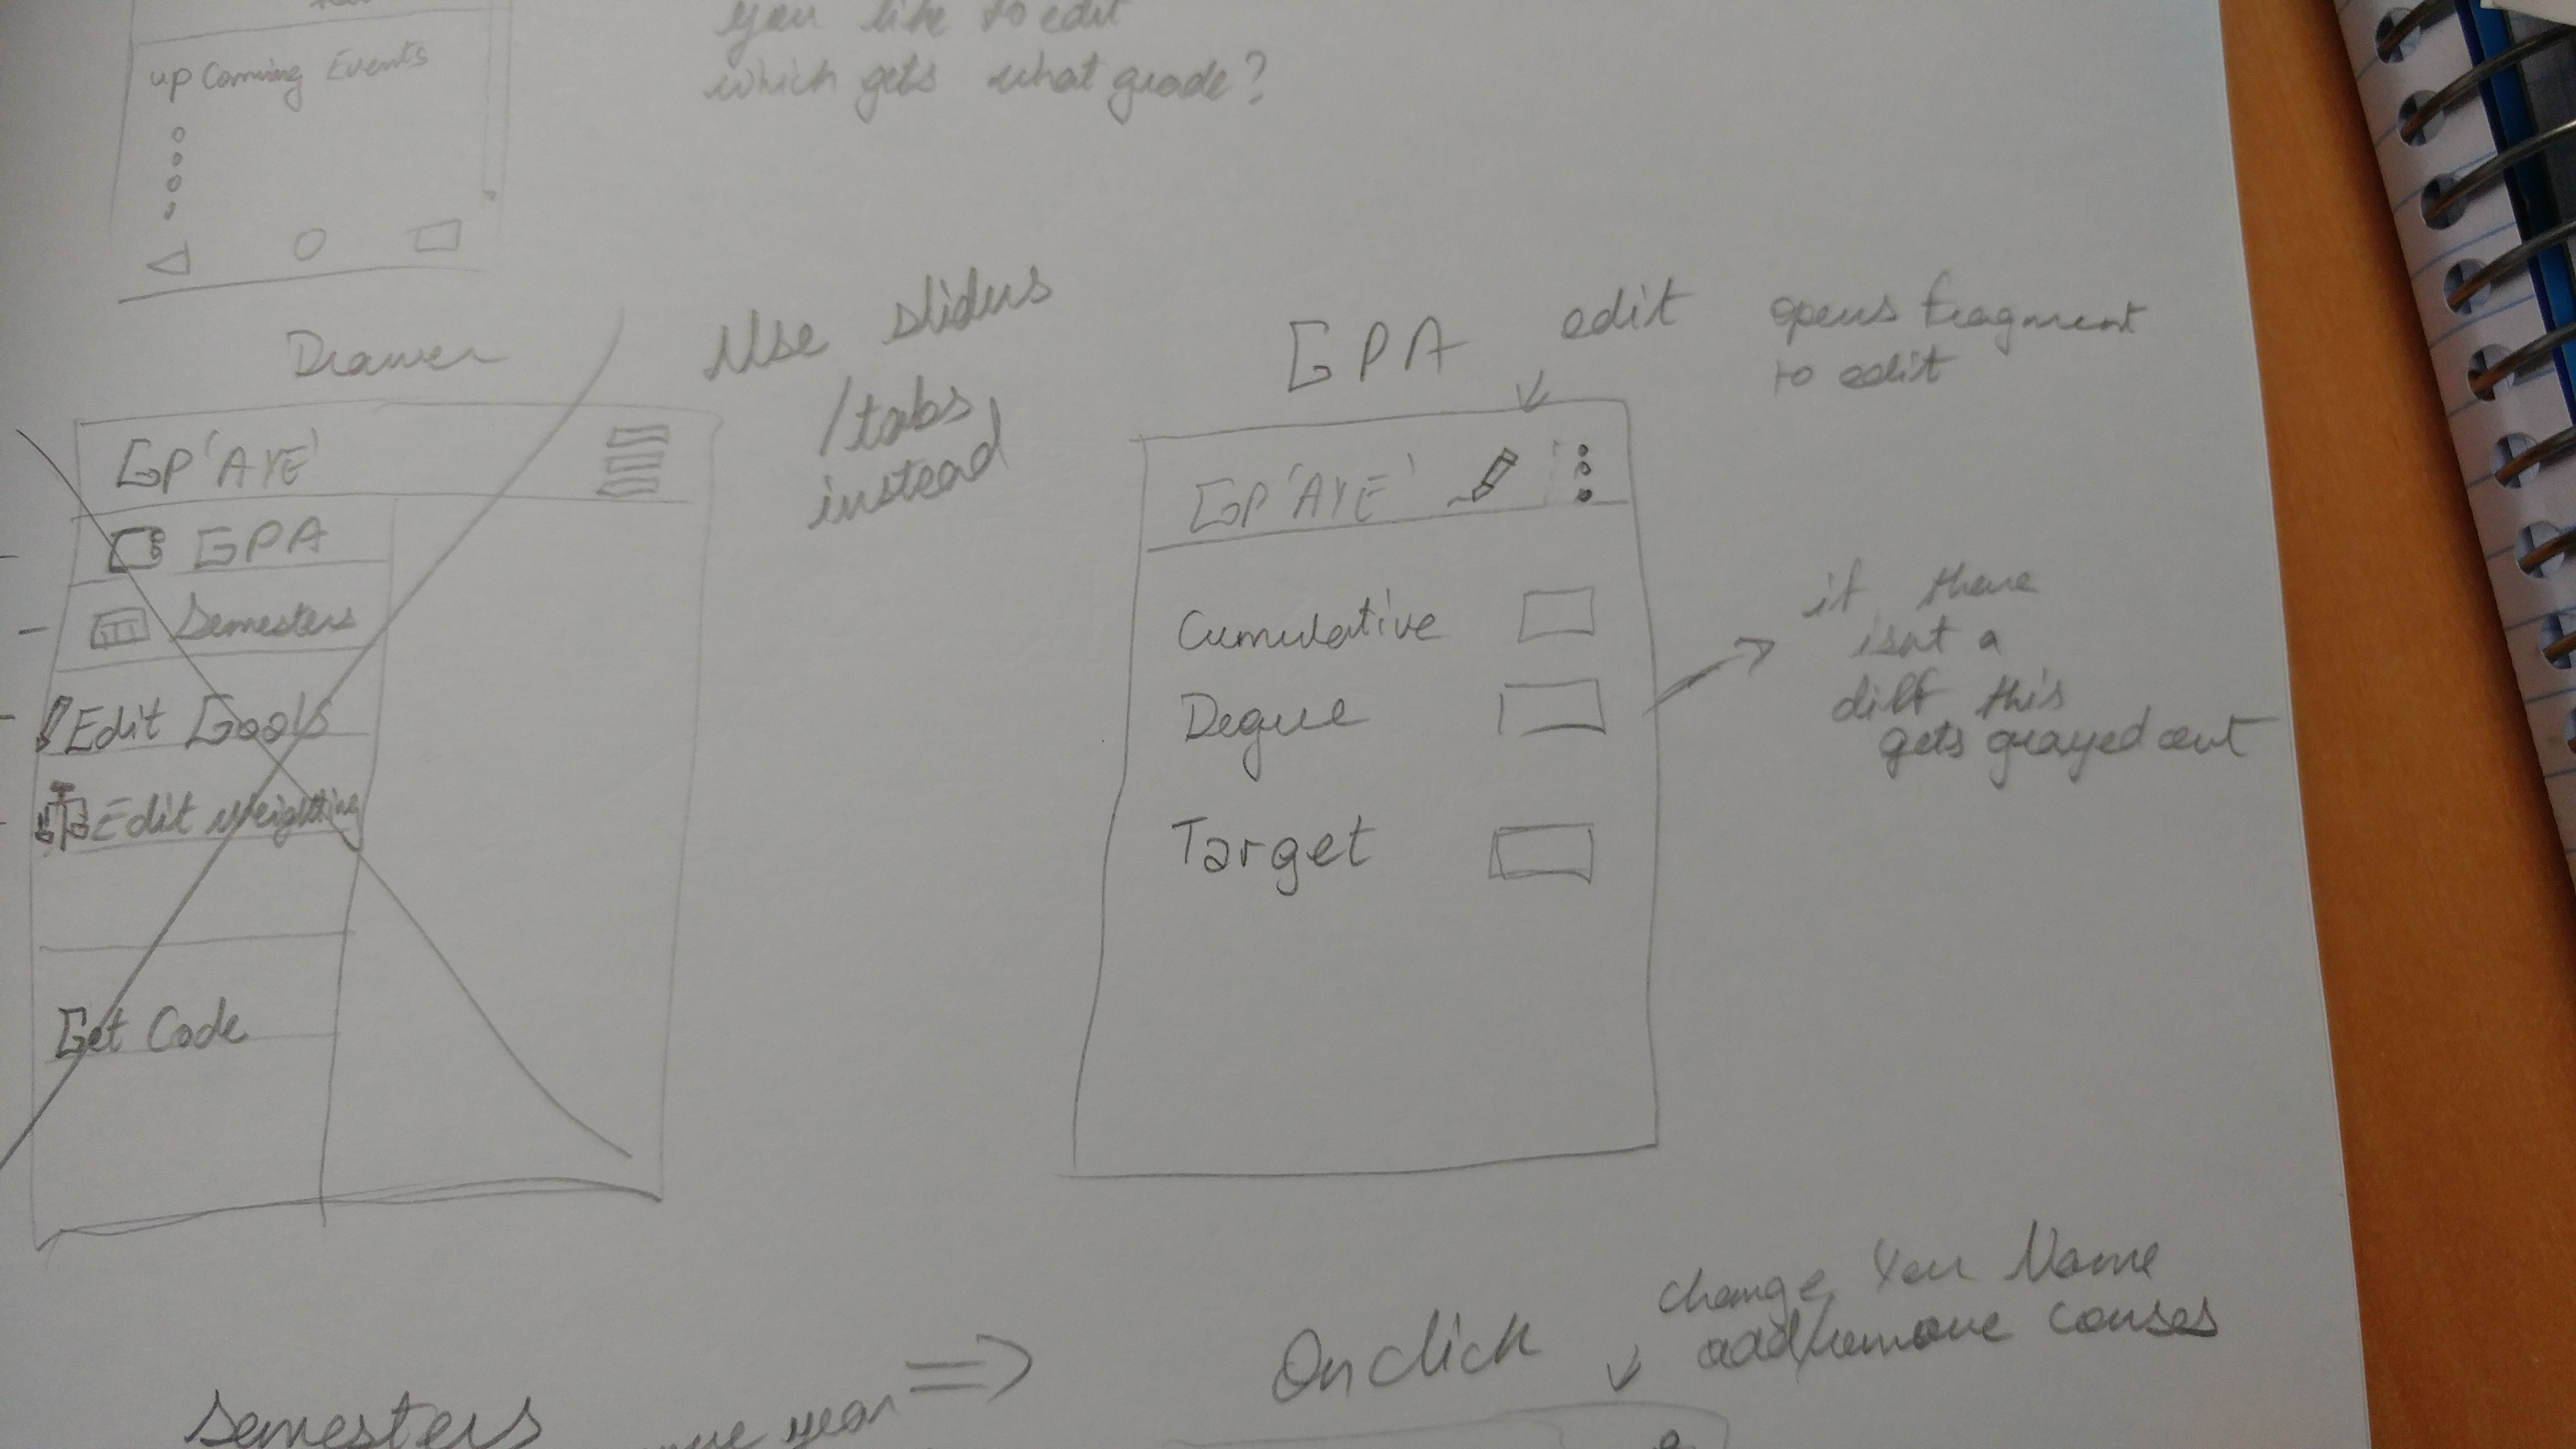 up Comming Events
you like to edit
which gets what grade?
Drawer
GP'AYE'
GPA
Semesters
Edit Goals
Edit weighting
Get Code
Use sliders
/tabs
instead
GPA
edit opens fragment
to edit
GP'AYE'
Cumulative
Degree
Target
if there
isnt a
diff this
gets grayed out
Semesters
year
On click
change Your Name
add/remove courses